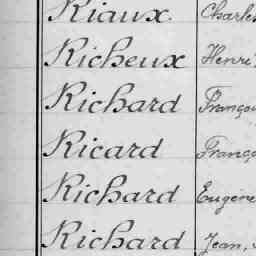 Riaux Charles
Richeux Henri
Richard Françoi
Ricard Franço
Richard Eugène
Richard Jean,